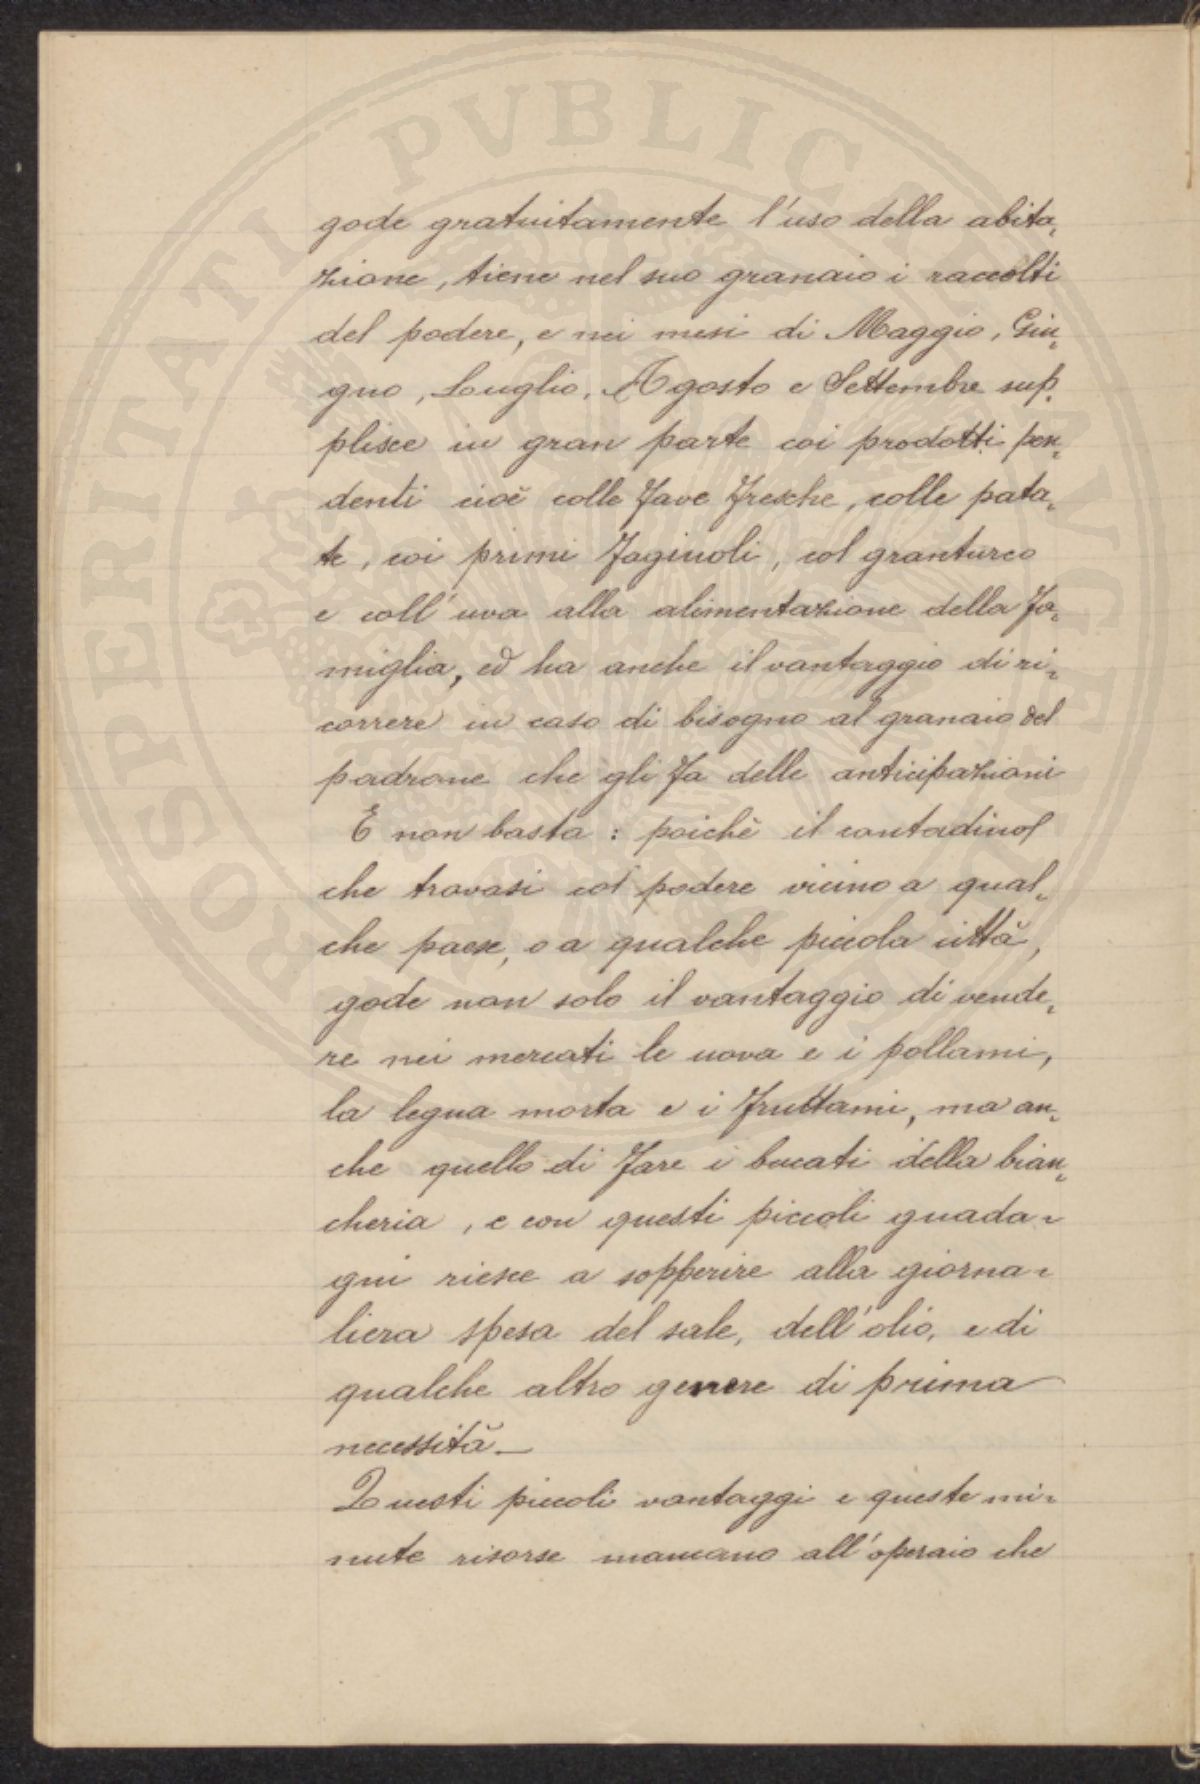 gode gratuitamente l'uso della abita-
zione, tiene nel suo granaio i raccolti
del podere, e nei mesi di Maggio, Giu-
gno, Luglio, Agosto e Settembre sup-
plisce in gran parte coi prodotti pen-
denti cioè colle fave fresche, colle pata-
te, coi primi fagiuoli, col granturco
e coll'uva alla alimentazione della fa-
miglia, ed ha anche il vantaggio di ri-
correre in caso di bisogno al granaio del
padrone che gli fa delle anticipazioni
E non basta: poichè il contadino
che trovasi col podere vicino a qual-
che paese, o a qualche piccola città,
gode non solo il vantaggio di vende-
re nei mercati le uova e i pollami,
la legna morta e i fruttami, ma an-
che quello di fare i bucati della bian-
cheria, e con questi piccoli guada-
gni riesce a sopperire alla giorna-
liera spesa del sale, dell'olio, e di
qualche altro genere di prima
necessità_
Questi piccoli vantaggi e queste mi-
nute risorse mancano all'operaio che
PROSPERITATI PVBLICAE AVGENDAE